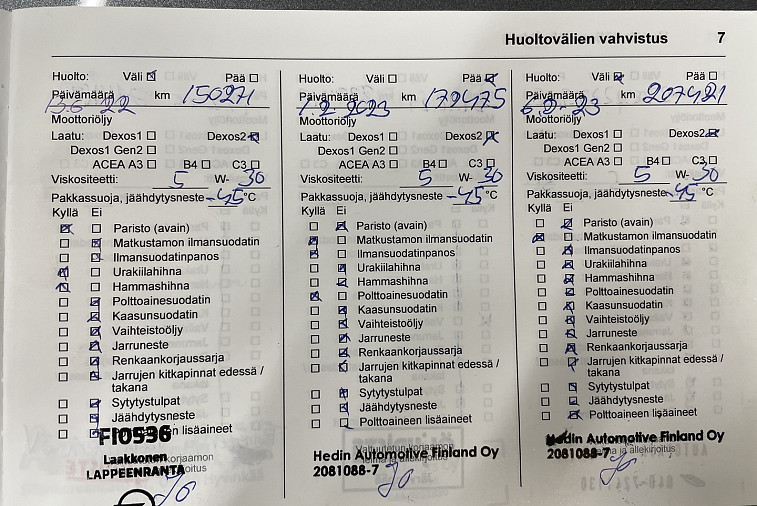 Huoltovälien vahvistus 7
Huolto: Väli Pää
Päivämäärä km 150271
13.6 22
Moottoriöljy
Laatu: Dexos1 Dexos2
Dexos1 Gen2
ACEA A3 B4 C3
Viskositeetti: 5 W- 30
Pakkassuoja, jäähdytysneste -45 °C
Kyllä Ei
Paristo (avain)
Matkustamon ilmansuodatin
Ilmansuodatinpanos
Urakiilahihna
Hammashihna
Polttoainesuodatin
Kaasunsuodatin
Vaihteistoöljy
Jarruneste
Renkaankorjaussarja
Jarrujen kitkapinnat edessä /
takana
Sytytystulpat
Jäähdytysneste
en lisäaineet
FI0536
Laakkonen
LAPPEENRANTA
Huolto: Väli Pää
Päivämäärä km 179475
1.2 2023
Moottoriöljy
Laatu: Dexos1 Dexos2
Dexos1 Gen2
ACEA A3 B4 C3
Viskositeetti: 5 W- 30
Pakkassuoja, jäähdytysneste -45 °C
Kyllä Ei
Paristo (avain)
Matkustamon ilmansuodatin
Ilmansuodatinpanos
Urakiilahihna
Hammashihna
Polttoainesuodatin
Kaasunsuodatin
Vaihteistoöljy
Jarruneste
Renkaankorjaussarja
Jarrujen kitkapinnat edessä /
takana
Sytytystulpat
Jäähdytysneste
Polttoaineen lisäaineet
Valtuutetun korjaamon
Hedin Automotive Finland Oy
leima ja allekirjoitus
2081088-7
Huolto: Väli Pää
Päivämäärä km 207421
Moottoriöljy
Laatu: Dexos1 Dexos2
Dexos1 Gen2
ACEA A3 B4 C3
Viskositeetti: 5 W- 30
Pakkassuoja, jäähdytysneste -45 °C
Kyllä Ei
Paristo (avain)
Matkustamon ilmansuodatin
Ilmansuodatinpanos
Urakiilahihna
Hammashihna
Polttoainesuodatin
Kaasunsuodatin
Vaihteistoöljy
Jarruneste
Renkaankorjaussarja
Jarrujen kitkapinnat edessä /
takana
Sytytystulpat
Jäähdytysneste
Polttoaineen lisäaineet
Hedin Automotive Finland Oy
2081088-7 ja allekirjoitus